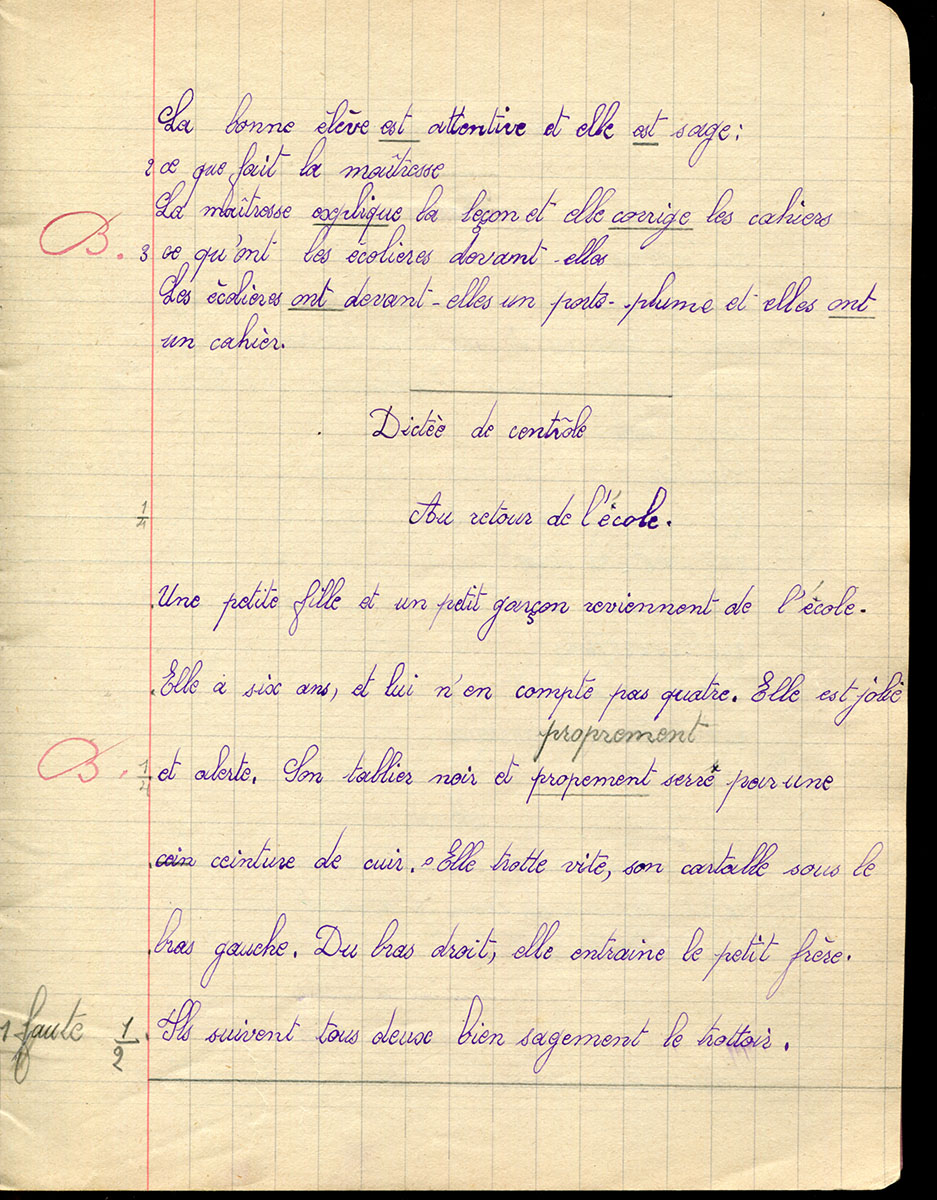 La bonne élève est attentive et elle est sage:
2 ce que fait la maîtresse
La maîtresse explique la leçon et elle corrige les cahiers
B. 3 ce qu'ont les écolières devant-elles
Les écolières ont devant-elles un porte-plume et elles ont
un cahier.
Dictée de contrôle
1/4 Au retour de l'école.
Une petite fille et un petit garçon reviennent de l'école.
Elle a six ans, et lui n'en compte pas quatre. Elle est jolie
proprement
B. 1/4 et alerte. Son tablier noir et propement serré par une
cein ceinture de cuir. Elle trotte vite, son cartable sous le
bras gauche. Du bras droit, elle entraine le petit frère.
1 faute 1/2 Ils suivent tous deux bien sagement le trottoir.